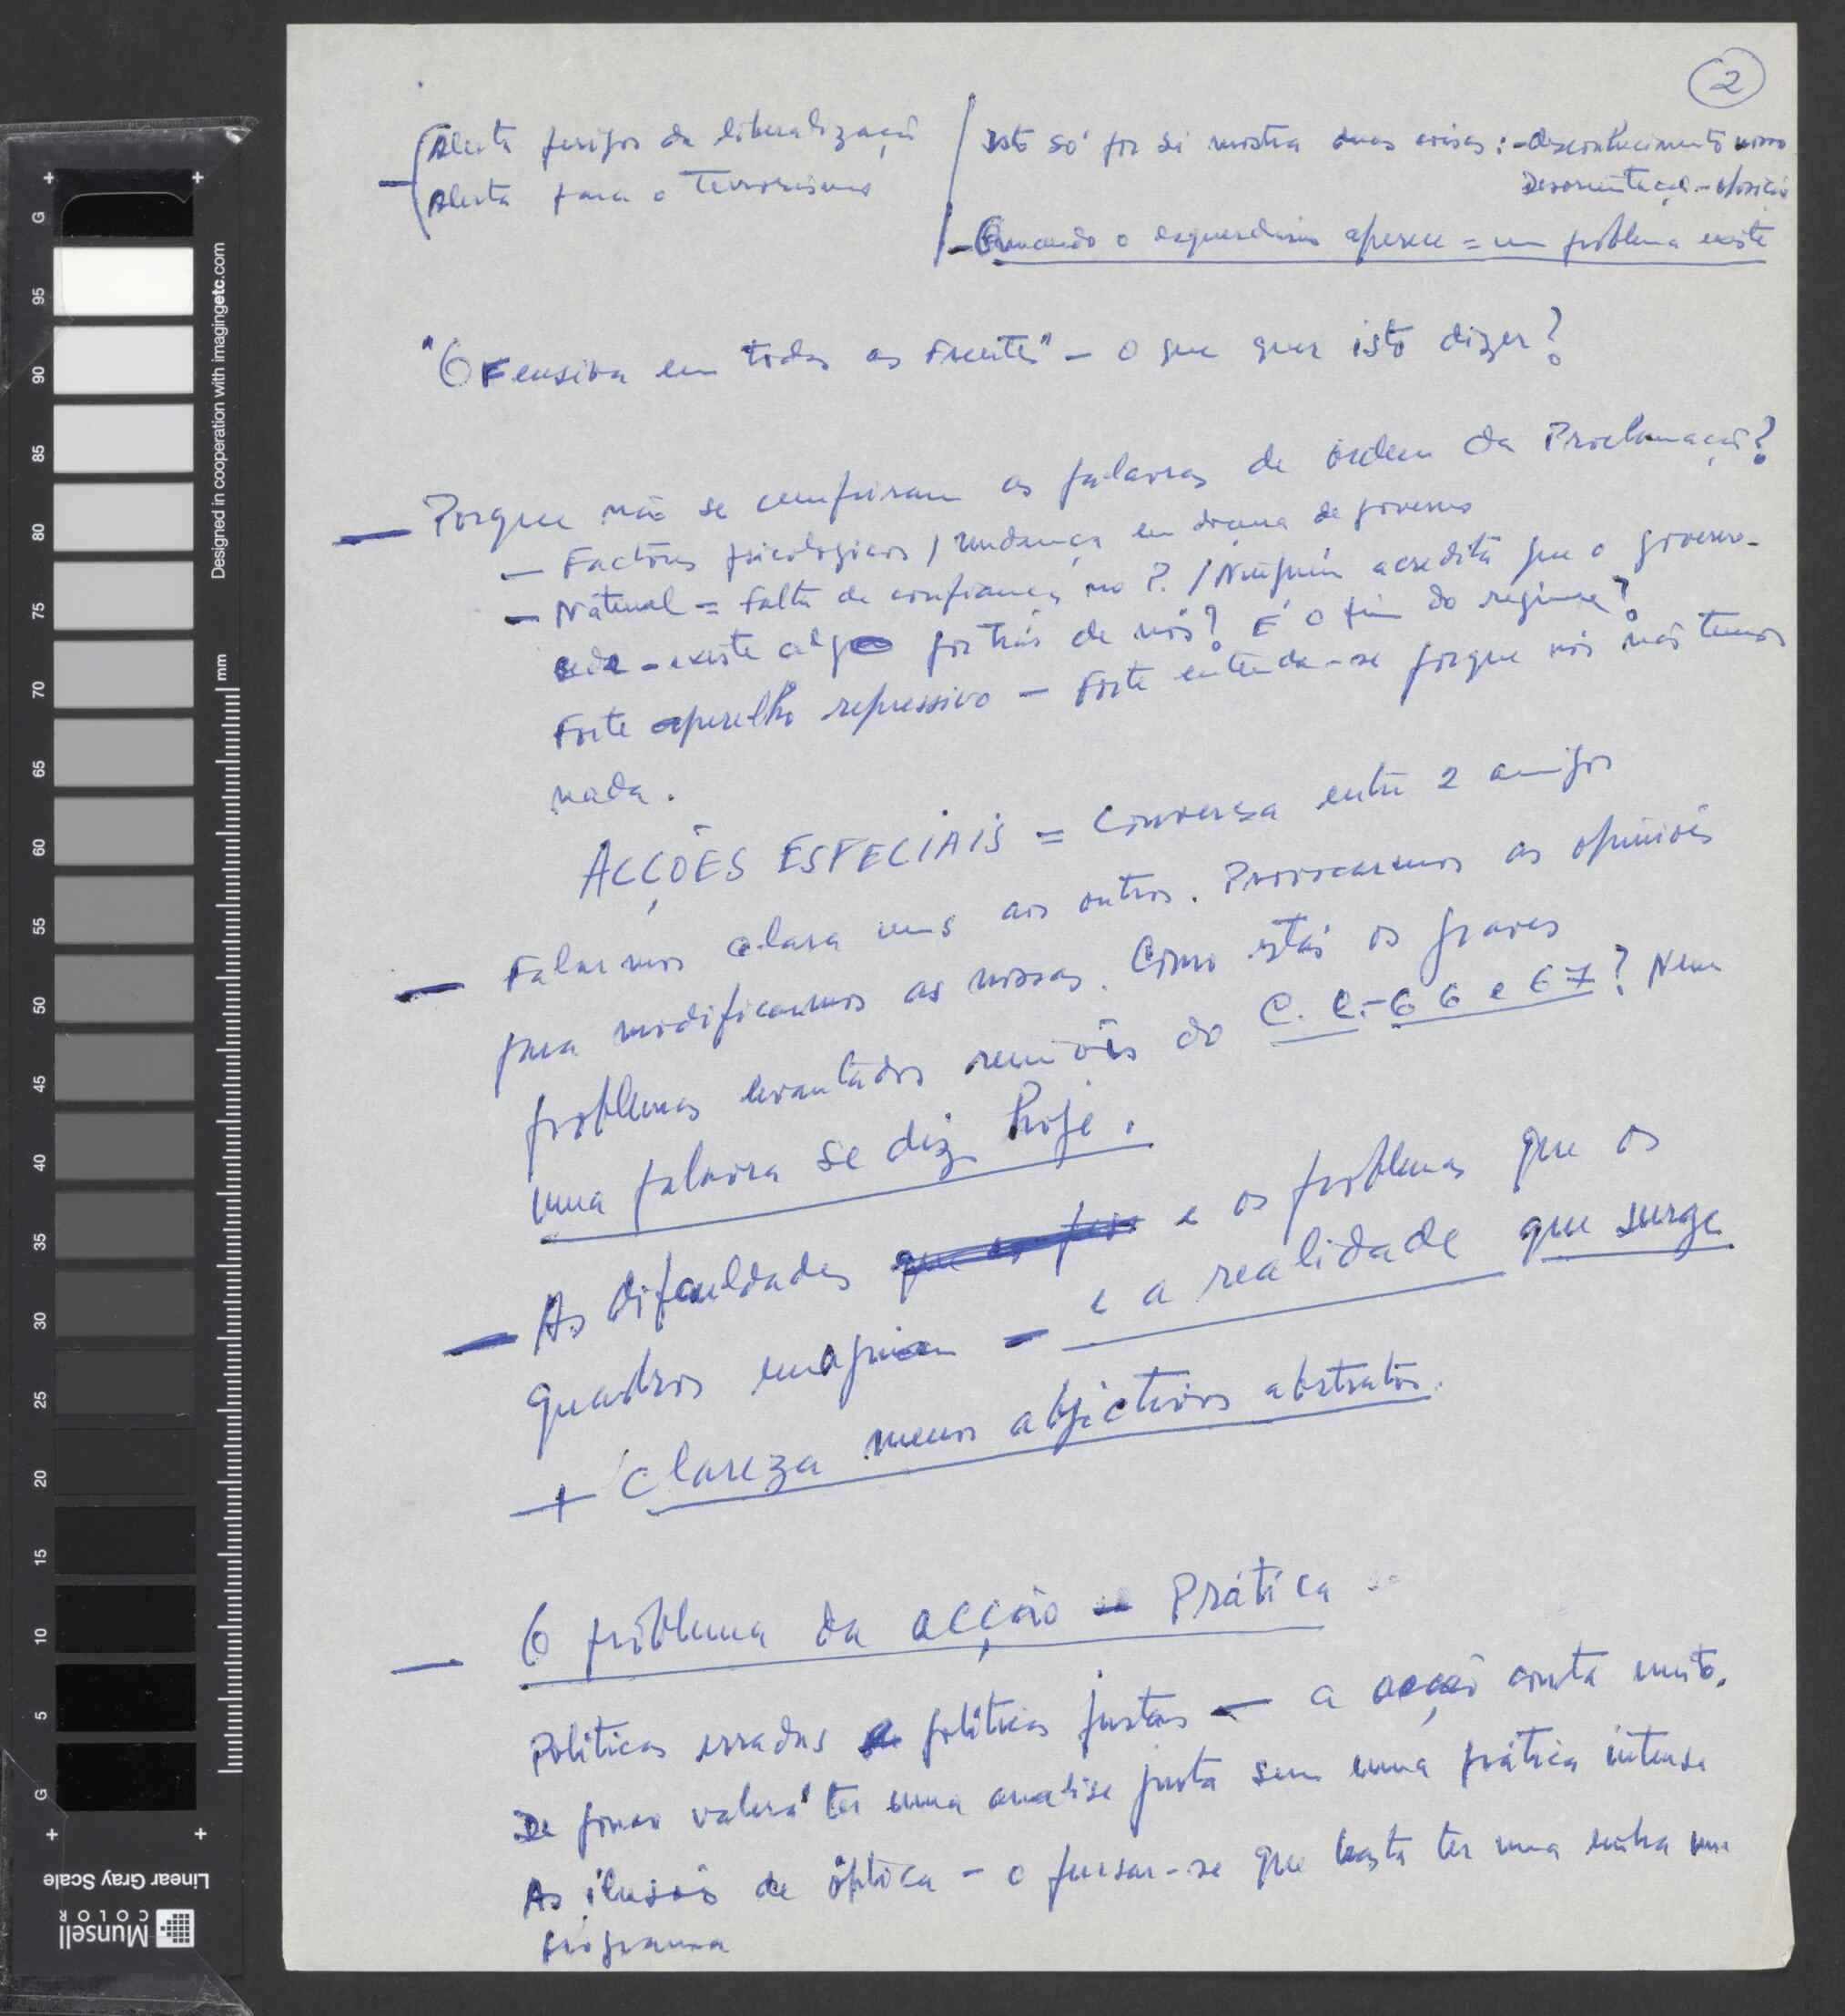 2
Alerta perigos da liberalização
Alerta para o Terrorismo
Isto só por si mostra duas coisas: - desconhecimento nosso
Desorientação - oposição
- Quando o esquerdismo aparece = um problema existe
"Ofensiva em todas as Frentes" - O que quer isto dizer?
— Porque não se cumpriram as palavras de ordem da Proclamação?
— Factores psicologicos / mudança em de governo
— Natural = Falta de confiança no P. / Ninguém acredita que o governo
ceda - existe algo por trás de nós? É o fim do regime?
Forte aparelho repressivo — Forte entenda-se porque nós não temos
nada.
ACÇÕES ESPECIAIS = Conversa entre 2 amigos
— Falarmos clara uns aos outros. Provocarmos as opiniões
para modificarmos as nossas. Como estão os graves
problemas levantados reuniões do C. C. - 66 e 67? Nem
uma palavra se diz hoje.
— As dificuldades e os problemas que os
quadros - e a realidade que surge
+ clareza menos abjectivos abstratos.
— O problema da acção — Prática
Politicas erradas politicas justas — a acção conta muito.
De pouco valerá ter uma analise justa sem uma prática intensa
As ilusões de óptica - o pensar-se que basta ter uma linha um
programa